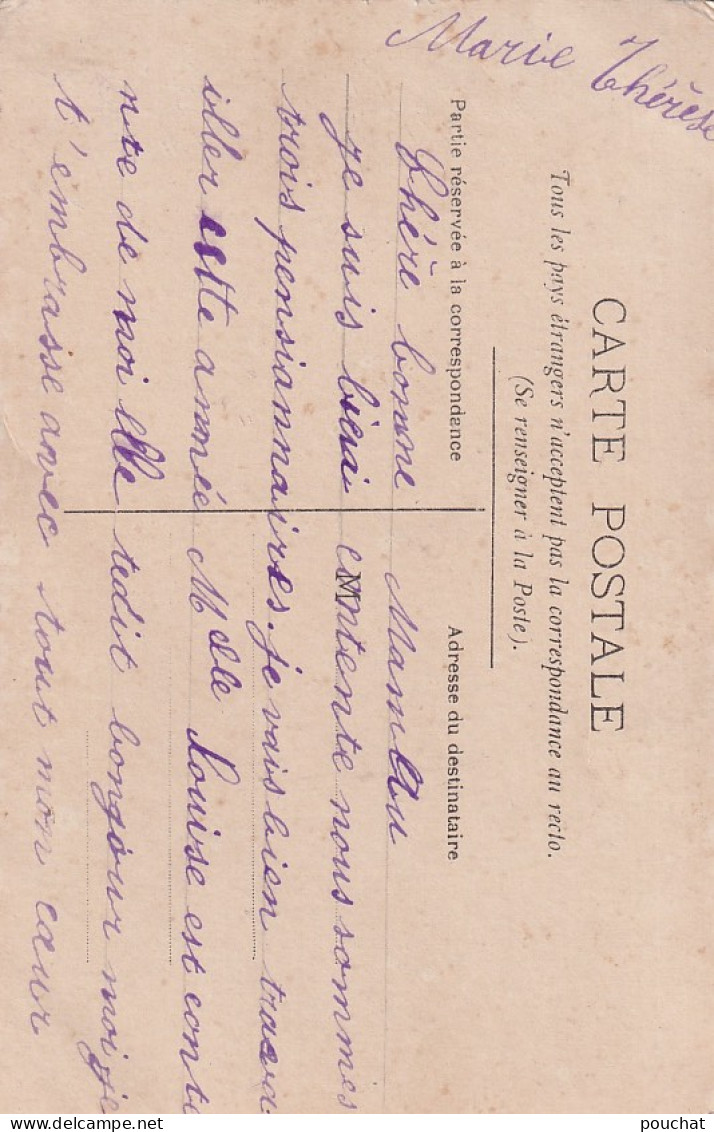 Marie Thérèse
CARTE POSTALE
Tous les pays étrangers n'acceptent pas la correspondance au recto.
(Se renseigner à la Poste).
Partie réservée à la correspondance
Adresse du destinataire
M
Chère bonne Maman
je suis bien contente nous sommes
trois pensiannaires. je vais bien trava
iller cette année Mlle Louise est conte
nte de moi elle tedit bongour moi je
t'embrasse avec tout mon cœur
pouchat